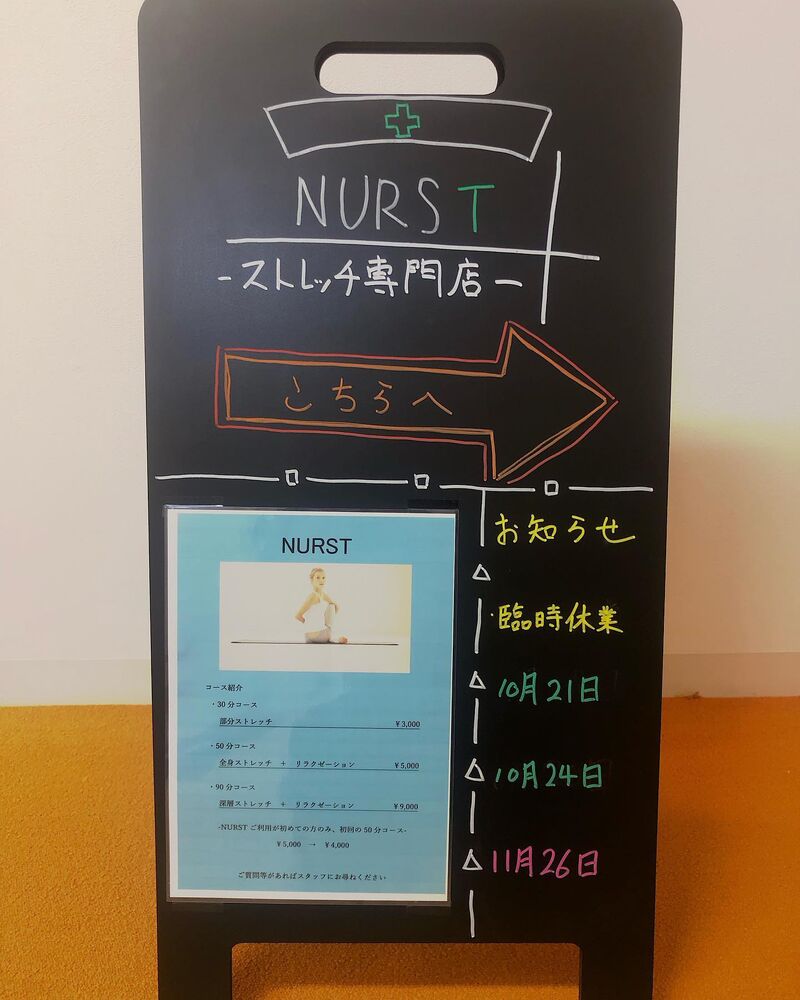 NURST
-ストレッチ専門店-
こちらへ
NURST
コース紹介
・30分コース
部分ストレッチ ¥3,000
・50分コース
全身ストレッチ + リラクゼーション ¥5,000
・90分コース
深層ストレッチ + リラクゼーション ¥9,000
-NURSTご利用が初めての方のみ、初回の50分コース-
¥5,000 → ¥4,000
ご質問等があればスタッフにお尋ねください
お知らせ
臨時休業
10月21日
10月24日
11月26日